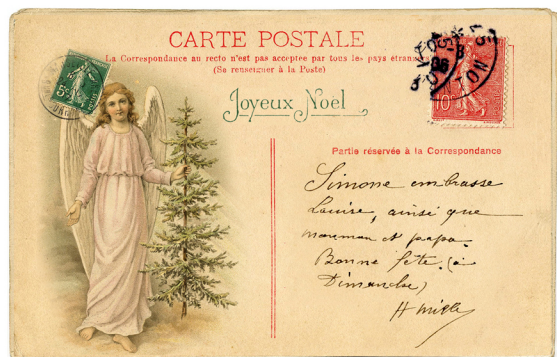 CARTE POSTALE
La Correspondance au recto n'est pas acceptée par tous les pays étrang
(Se renseigner à la Poste)
Joyeux Noël
5c
10
Partie réservée à la Correspondance
Simone embrasse
Louise, ainsi que
maman et papa.
Bonne fête (à
Dimanche)